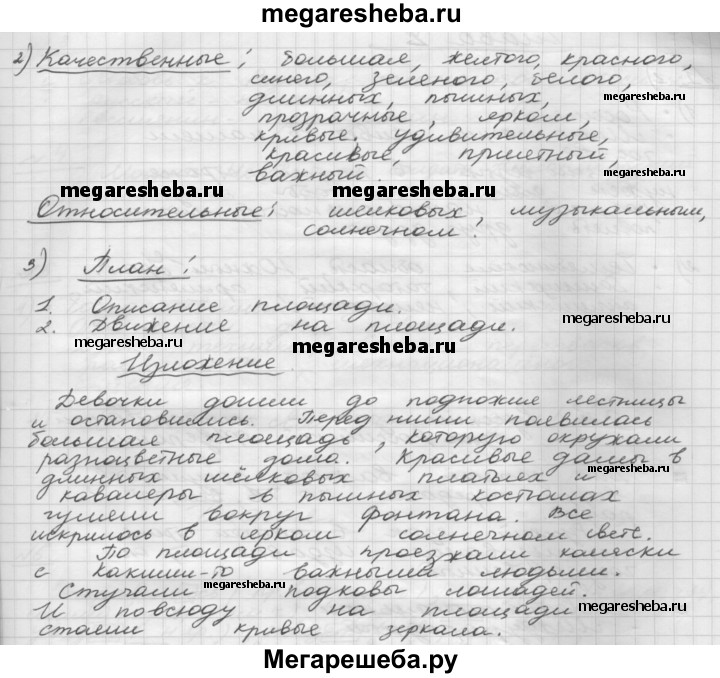 megaresheba.ru
2) Качественные: большая, желтого, красного,
синего, зеленого, белого,
длинных, пышных,
megaresheba.ru
прозрачные, ярком,
кривые. удивительные,
красивые, приметный,
важный.
megaresheba.ru megaresheba.ru megaresheba.ru
Относительные: шёлковых, музыкальным,
солнечном.
3) План:
1. Описание площади.
2. Движение на площади.
megaresheba.ru
megaresheba.ru
Изложение
Девочки дошли до подножия лестницы
и остановились. Перед ними появилась
большая площадь, которую окружали
разноцветные дома. Красивые дамы в
megaresheba.ru
длинных шёлковых платьях и
кавалеры в пышных костюмах
гуляли вокруг фонтана. Все
искрилось в ярком солнечном свете.
По площади проезжали коляски
с какими-то важными людьми.
megaresheba.ru
Стучали подковы лошадей.
И повсюду на площади
megaresheba.ru
стояли кривые зеркала.
Мегарешеба.ру